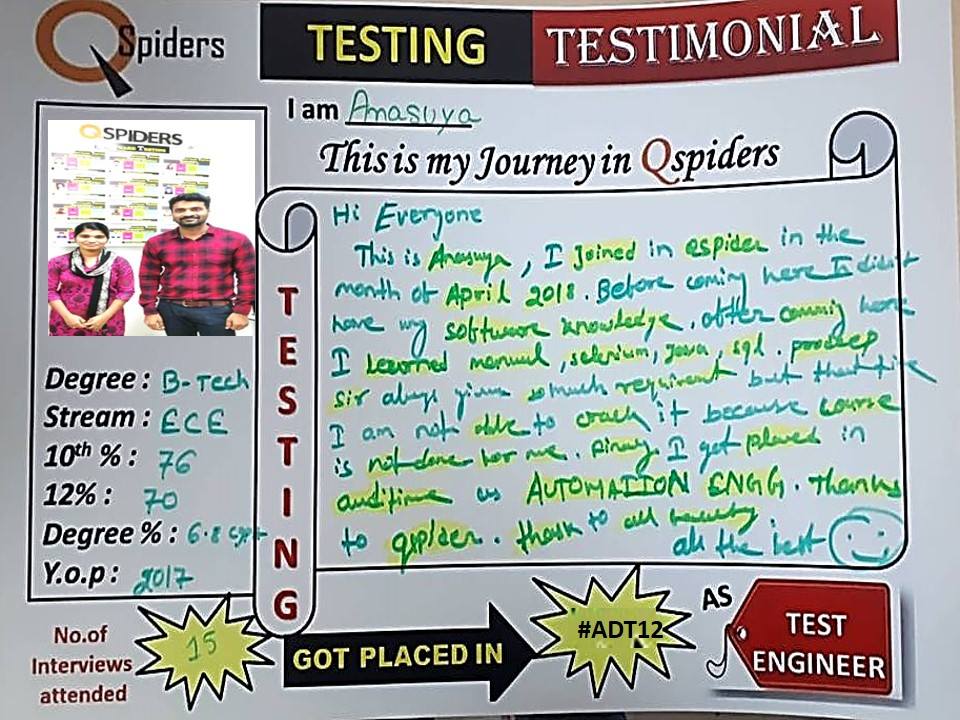 QSpiders
TESTING TESTIMONIAL
I am Anasuya
This is my Journey in Qspiders
QSPIDERS
Hi Everyone
This is Anasuya, I Joined in qspider in the
month of April 2018. Before coming here I didn't
have my software knowledge. after coming here
I Learned manual, selenium, Java, sql. pradeep
sir always given somuch requirment but that time
I am not able to crack it because course
is not done for me. I got placed in
as AUTOMATION ENGG. Thanks
to qspider. thank to all
all the best
TESTING
Degree : B-Tech
Stream : ECE
10th % : 76
12% : 70
Degree % : 6.8
Y.o.p : 2017
No.of
Interviews
attended
15
GOT PLACED IN
#ADT12
AS
TEST
ENGINEER